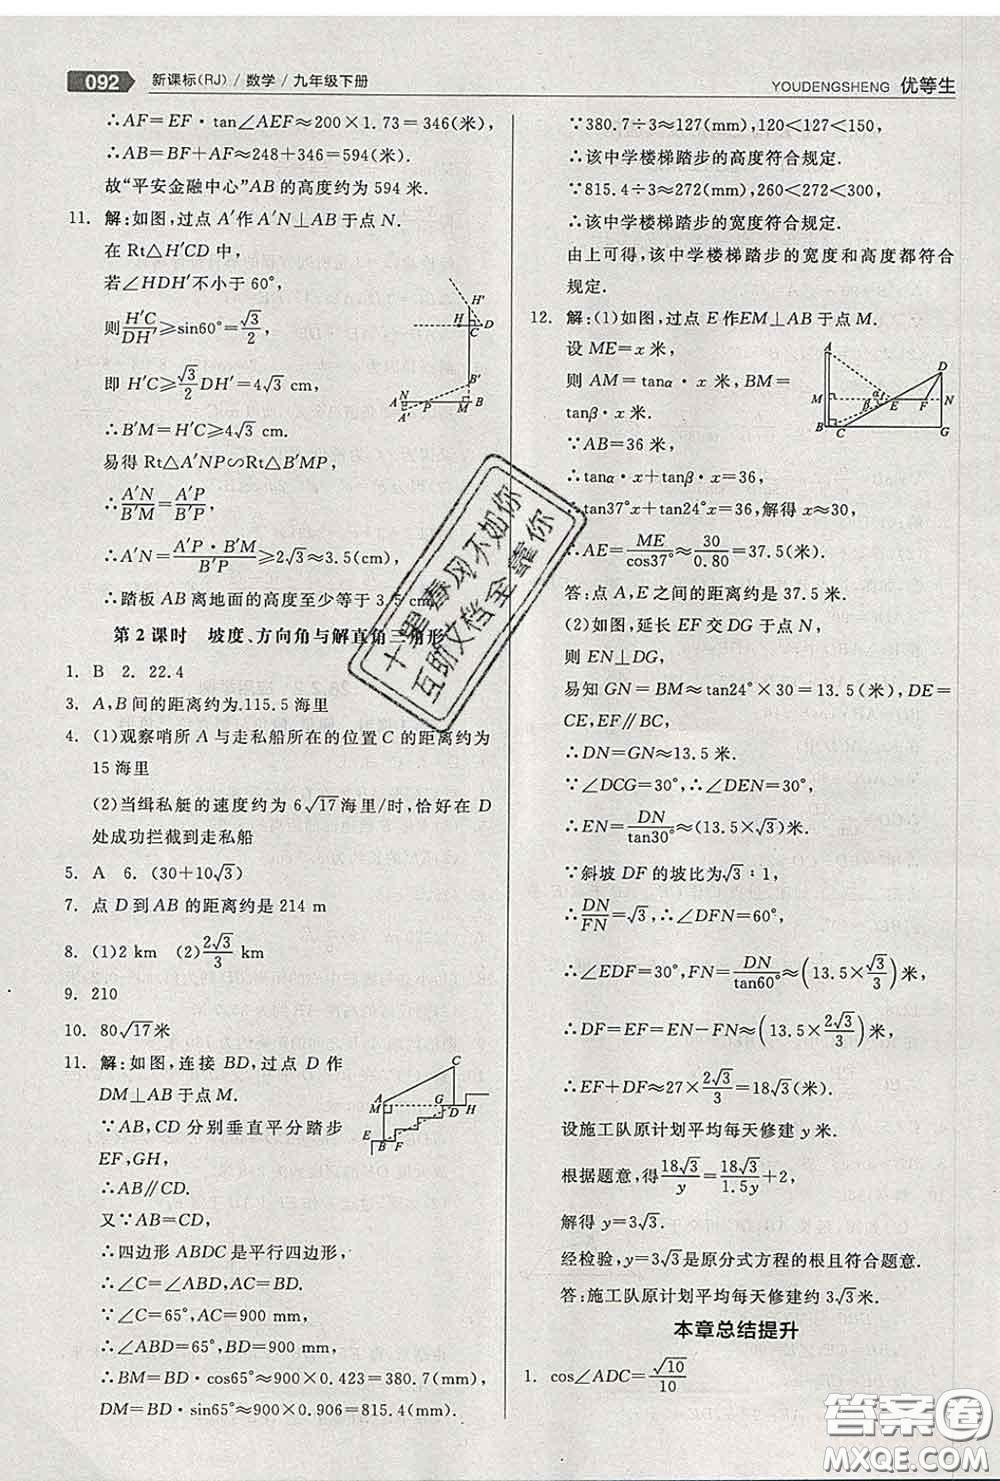 092 新课标(RJ)/数学/九年级下册
YOUDENGSHENG 优等生
∴AF=EF·tan∠AEF≈200×1.73=346(米),
∴AB=BF+AF≈248+346=594(米).
故“平安金融中心”AB的高度约为594米.
11. 解:如图,过点A′作A′N⊥AB于点N.
在Rt△H′CD中,
若∠HDH′不小于60°,
则H′C/DH′≥sin60°=√3/2,
即H′C≥√3/2 DH′=4√3 cm,
∴B′M=H′C≥4√3 cm.
易得Rt△A′NP∽Rt△B′MP,
∴A′N/B′M=A′P/B′P,
∴A′N=A′P·B′M/B′P≥2√3≈3.5(cm),
∴踏板AB离地面的高度至少等于3.5 cm.
H′
H
C
D
A
N
P
M
B
A′
第2课时 坡度、方向角与解直角三角形
1. B 2. 22.4
3. A,B间的距离约为115.5海里
4. (1)观察哨所A与走私船所在的位置C的距离约为
15海里
(2)当缉私艇的速度约为6√17海里/时,恰好在D
处成功拦截到走私船
5. A 6. (30+10√3)
7. 点D到AB的距离约是214 m
8. (1)2 km (2)2√3/3 km
9. 210
10. 80√17米
11. 解:如图,连接BD,过点D作
DM⊥AB于点M.
∵AB,CD分别垂直平分踏步
EF,GH,
∴AB∥CD.
又∵AB=CD,
∴四边形ABDC是平行四边形,
∴∠C=∠ABD,AC=BD.
∵∠C=65°,AC=900 mm,
∴∠ABD=65°,BD=900 mm,
∴BM=BD·cos65°≈900×0.423=380.7(mm),
DM=BD·sin65°≈900×0.906=815.4(mm).
C
A
M
G
D
H
E
B
F
∵380.7÷3≈127(mm),120<127<150,
∴该中学楼梯踏步的高度符合规定.
∵815.4÷3≈272(mm),260<272<300,
∴该中学楼梯踏步的宽度符合规定.
由上可得,该中学楼梯踏步的宽度和高度都符合
规定.
12. 解:(1)如图,过点E作EM⊥AB于点M.
设ME=x米,
则AM=tanα·x米,BM=
tanβ·x米.
∵AB=36米,
∴tanα·x+tanβ·x=36,
∴tan37°x+tan24°x=36,解得x≈30,
∴AE=ME/cos37°≈30/0.80=37.5(米).
答:点A,E之间的距离约是37.5米.
(2)如图,延长EF交DG于点N,
则EN⊥DG,
易知GN=BM≈tan24°×30=13.5(米),DE=
CE,EF∥BC,
∴DN=GN≈13.5米.
∵∠DCG=30°,∴∠DEN=30°,
∴EN=DN/tan30°≈(13.5×√3)米.
∵斜坡DF的坡比为√3∶1,
∴DN/FN=√3,∴∠DFN=60°,
∴∠EDF=30°,FN=DN/tan60°≈(13.5×√3/3)米,
∴DF=EF=EN-FN≈(13.5×2√3/3)米,
∴EF+DF≈27×2√3/3=18√3(米).
设施工队原计划平均每天修建y米.
根据题意,得18√3/y=18√3/1.5y+2,
解得y=3√3.
经检验,y=3√3是原分式方程的根且符合题意.
答:施工队原计划平均每天修建约3√3米.
A
D
M
α
β
E
F
N
B
C
G
本章总结提升
1. cos∠ADC=√10/10
十里春风不如你
互助文档全靠你
答案圈
MXQE.COM